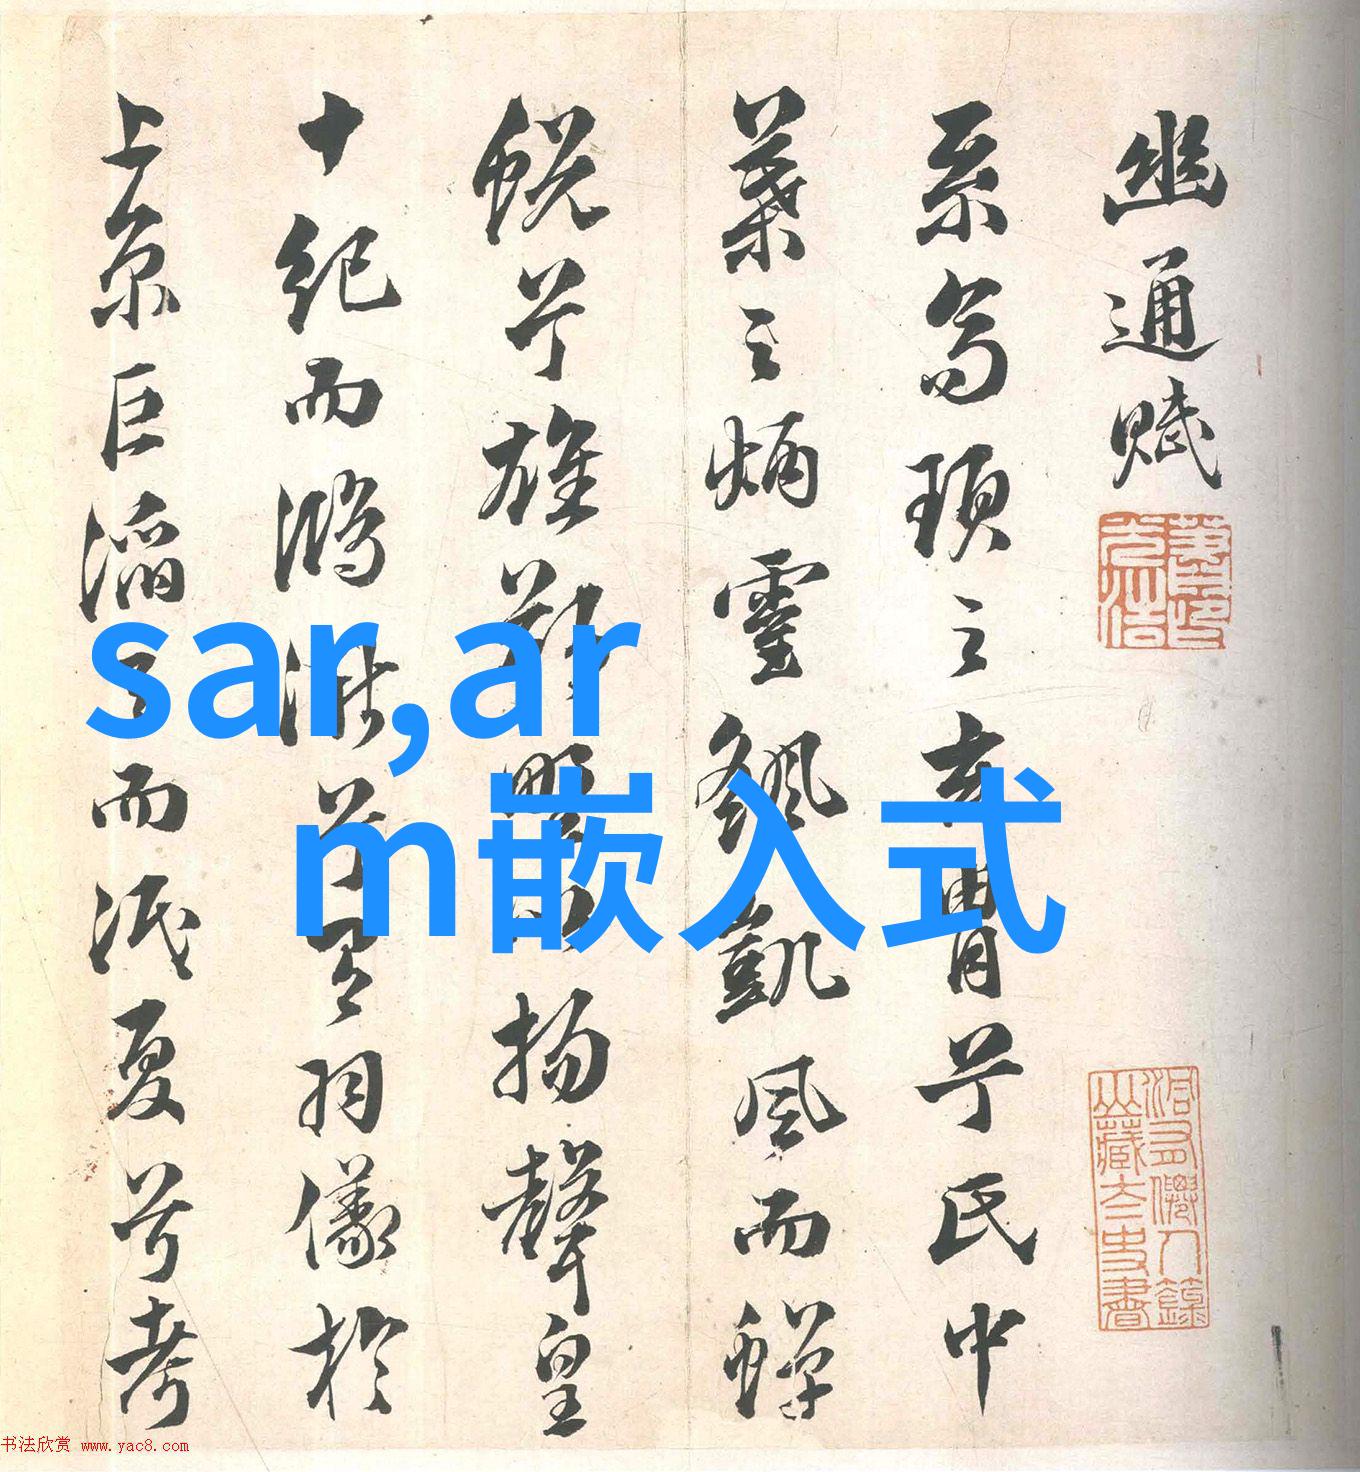 幽通賦
系高頊之玄胄兮氏中
葉之炳靈颻凱風而蟬
蛻兮雄朔野以揚聲皇
十紀而鴻漸兮有羽儀於
上京巨滔天而泯夏兮考
sar,ar
m嵌入式
书法欣赏 www.yac8.com